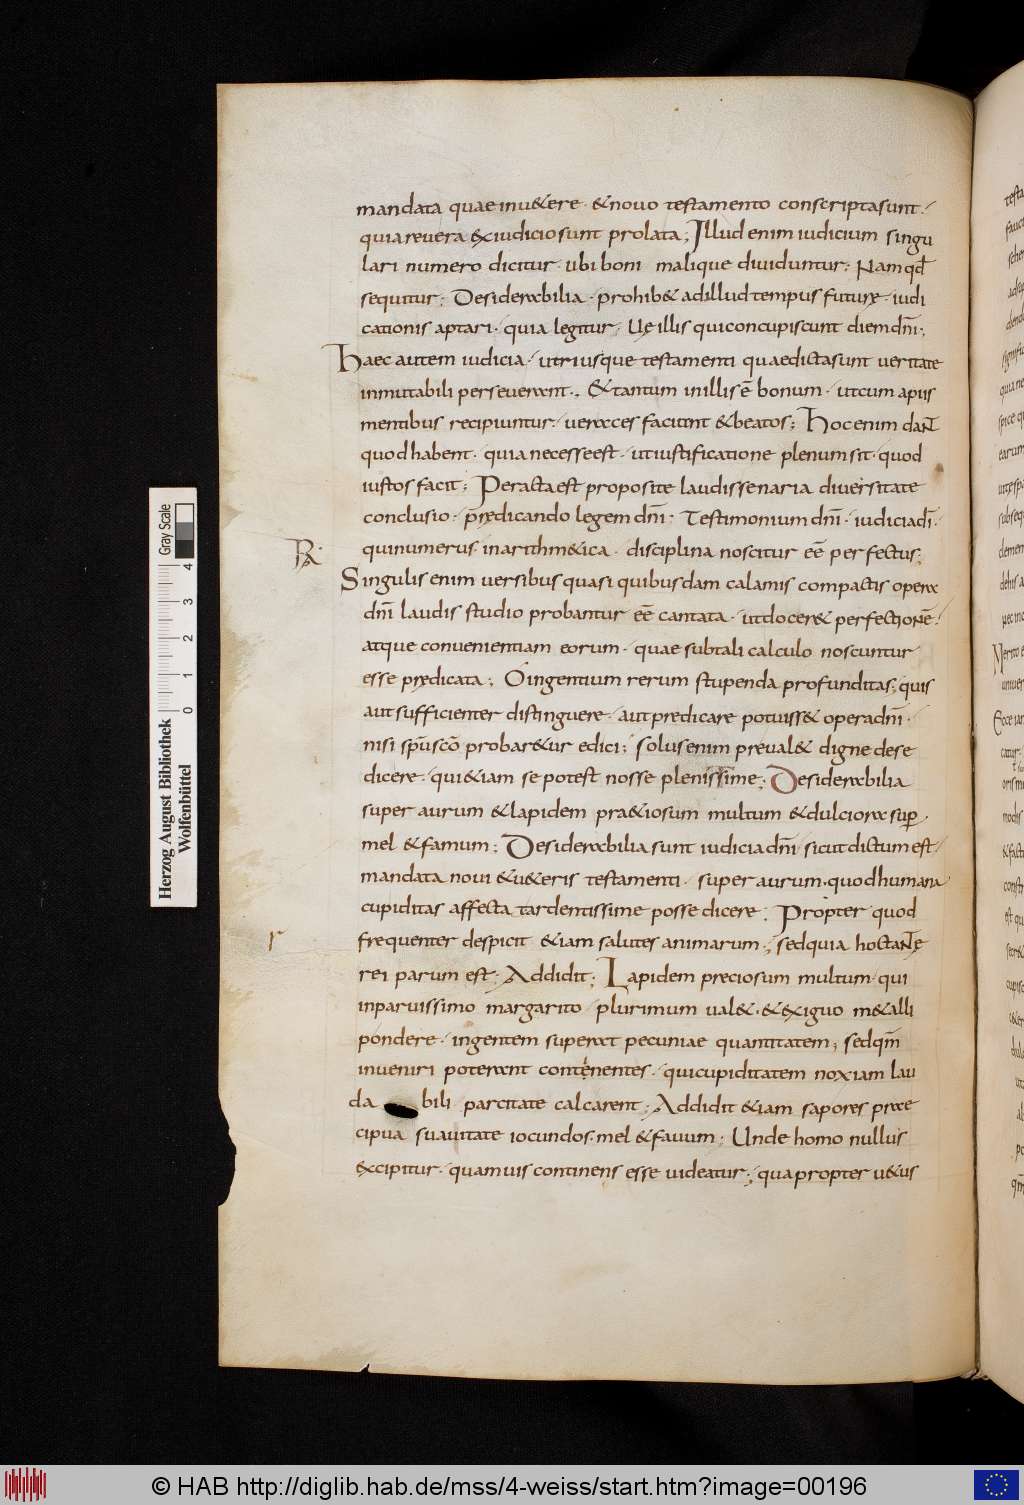 mandata quae inu&ere · &nouo testamento conscripta sunt ·
quia reuera exiudicio sunt prolata ; Illud enim iudicium singu
lari numero dicitur · ubi boni malique diuiduntur ; Nam qđ
sequitur ; Desiderabilia · prohib& ad illud tempus futurę · iudi
cationis aptari · quia legitur ; Uę illis qui concupiscunt diem dn̄i ·,
Haec autem iudicia · utriusque testamenti quae dicta sunt ueritate
inmutabili perseuerant ·, &tantum in illis ē bonum · ut cum a piis
mentibus recipiuntur · ueraces faciunt &beatos ; Hoc enim dant
quod habent · quia necesse est · ut iustificatione plenum sit · quod
iustos facit ; Peracta est proposite laudis senaria diuersitate
conclusio · prędicando legem dn̄i · Testimonium dn̄i · iudicia dn̄i ·
qui numerus in arithm&ica · disciplina noscitur eē perfectus ;
Singulis enim uersibus quasi quibusdam calamis compactis opera
dn̄i laudis studio probantur eē cantata · ut docer& perfectionē
atque conuenientiam eorum · quae sub tali calculo noscuntur
esse prędicata ; O ingentium rerum stupenda profunditas ; quis
aut sufficienter distinguere · aut predicare potuiss& opera dn̄i ·
nisi sp̄u sc̄o probar&ur edici ; solus enim preual& digne de se
dicere · qui &iam se potest nosse plenissime ; Desiderabilia
super aurum &lapidem pra&iosum multum &dulciora sup̄
mel &famum ; Desiderabilia sunt iudicia dn̄i sicut dictum est ·
mandata noui &u&eris testamenti · super aurum · quod humana
cupiditas affecta, tardentissime posse dicere ; Propter quod
frequenter despicit &iam salutes animarum ·, sed quia hoc tantę
rei parum est · Addidit ; Lapidem preciosum multum · qui
in paruissimo margarito · plurimum ual& · &exiguo m&alli
pondere · ingentem superat pecuniae quantitatem ; sed qm̄
inueniri poterant contęnentes · qui cupiditatem noxiam lau
da bili parcitate calcarent ; Addidit &iam sapores prae
cipua suauitate iocundos · mel &fauum ; Unde homo nullus
excipitur · quamuis continens esse uideatur ·, qua propter u&us
Herzog August Bibliothek
Wolfenbüttel
0 1 2 3 4
Gray Scale
© HAB http://diglib.hab.de/mss/4-weiss/start.htm?image=00196